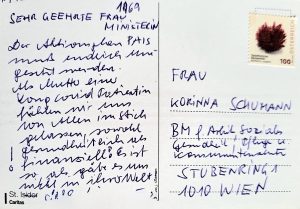 1969
SEHR GEEHRTE FRAU
MINISTERIN
Der Aktionsplan PAIS
muß endlich um-
gesetzt werden.
Als Mutter einer
Long covid Patientin
fühlen wir uns
von Allen im Stich
gelassen, sowohl
gesundheitlich als
finanziell! Es ist
so, als gäbe es uns
nicht in ihrer Welt.
St. Isidor
Caritas
100
FRAU
KORINNA SCHUMANN
BM f. Arbeit Soziales
Gesundheit, Pflege u.
Konsumentenschutz
STUBENRING 1
1010 WIEN